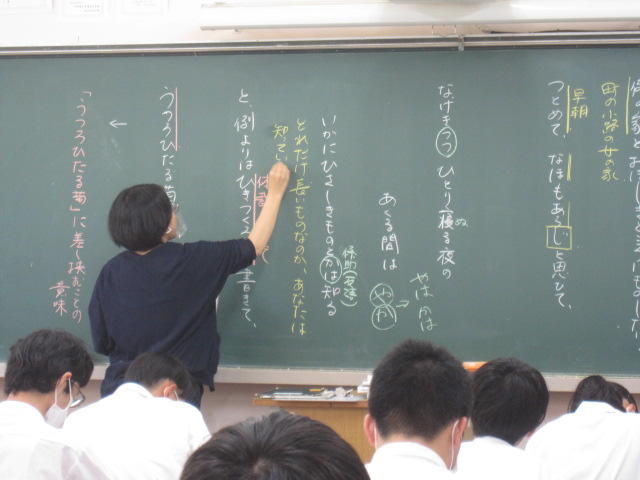 田の小路の女の家
早朝
つとめて、なほもあらじと思ひて、
なげきつつひとり寝る夜の
ぬ
あくる間は
やは かは
やか
いかにひさしきものとかは知る
係助(反語)
どれだけ長いものなのか、あなたは
知ってい
と、例よりはひきつくろ
書きて、
うつろひたる菊
←
「うつろひたる菊」に差し挟むことの
意味